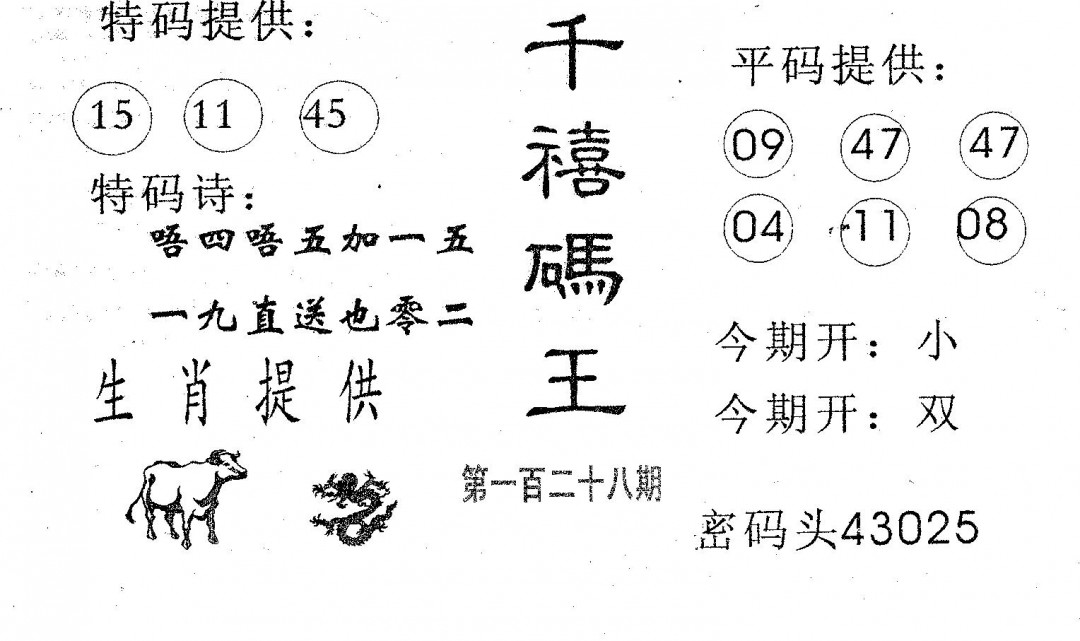 特码提供：
15 11 45
特码诗：
唔四唔五加一五
一九直送也零二
生肖提供
千禧碼王
第一百二十八期
平码提供：
09 47 47
04 11 08
今期开：小
今期开：双
密码头43025